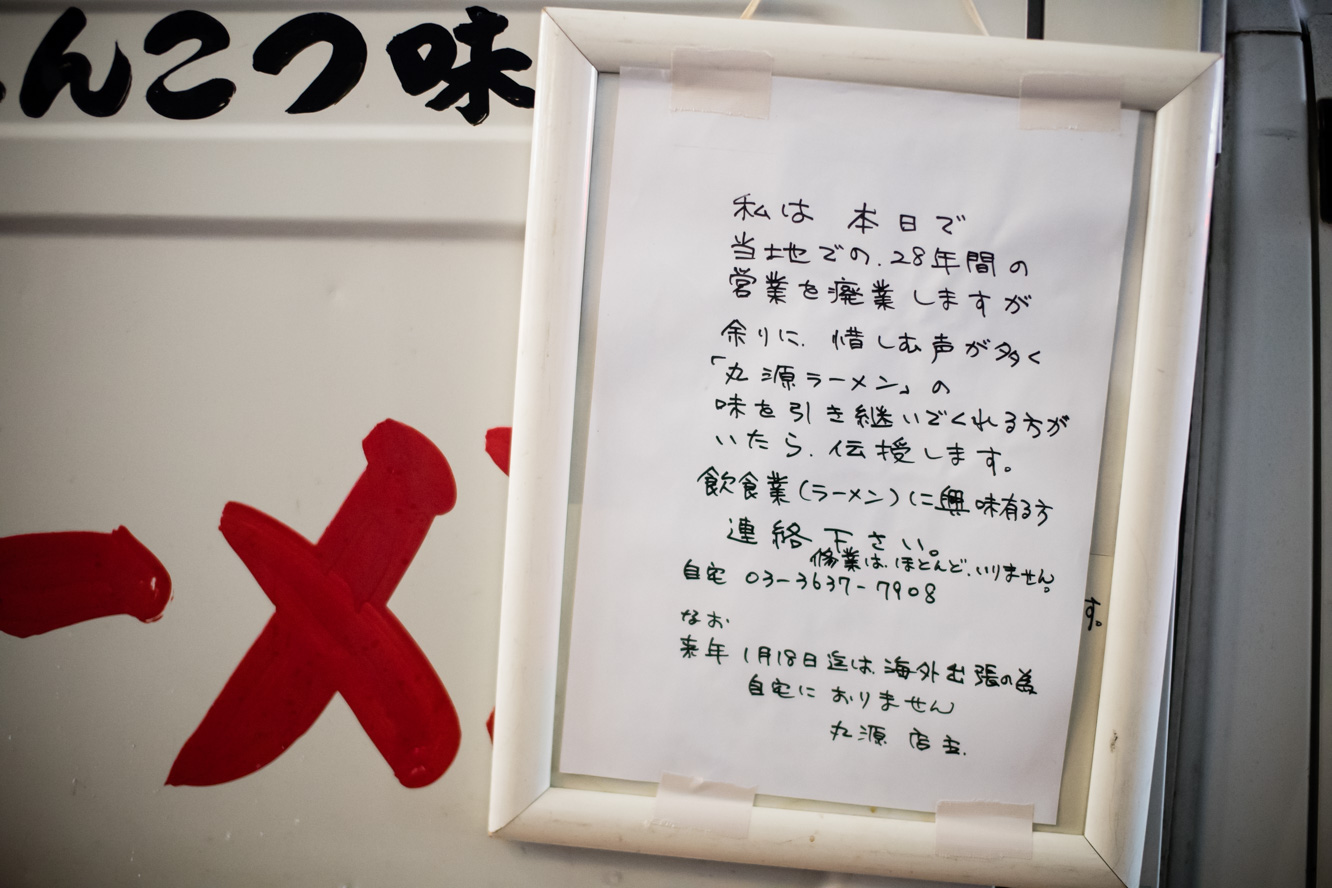 んこつ味
ーメ
私は 本日で
当地での、28年間の
営業を廃業しますが
余りに、惜しむ声が多く
「丸源ラーメン」の
味を引き継いでくれる方が
いたら、伝授します。
飲食業(ラーメン)に興味有る方
連絡下さい。
修業は、ほとんど、いりません。
自宅 03-3637-7908
なお
来年 1月18日迄は、海外出張の為
自宅に おりません
丸源 店主.
す。